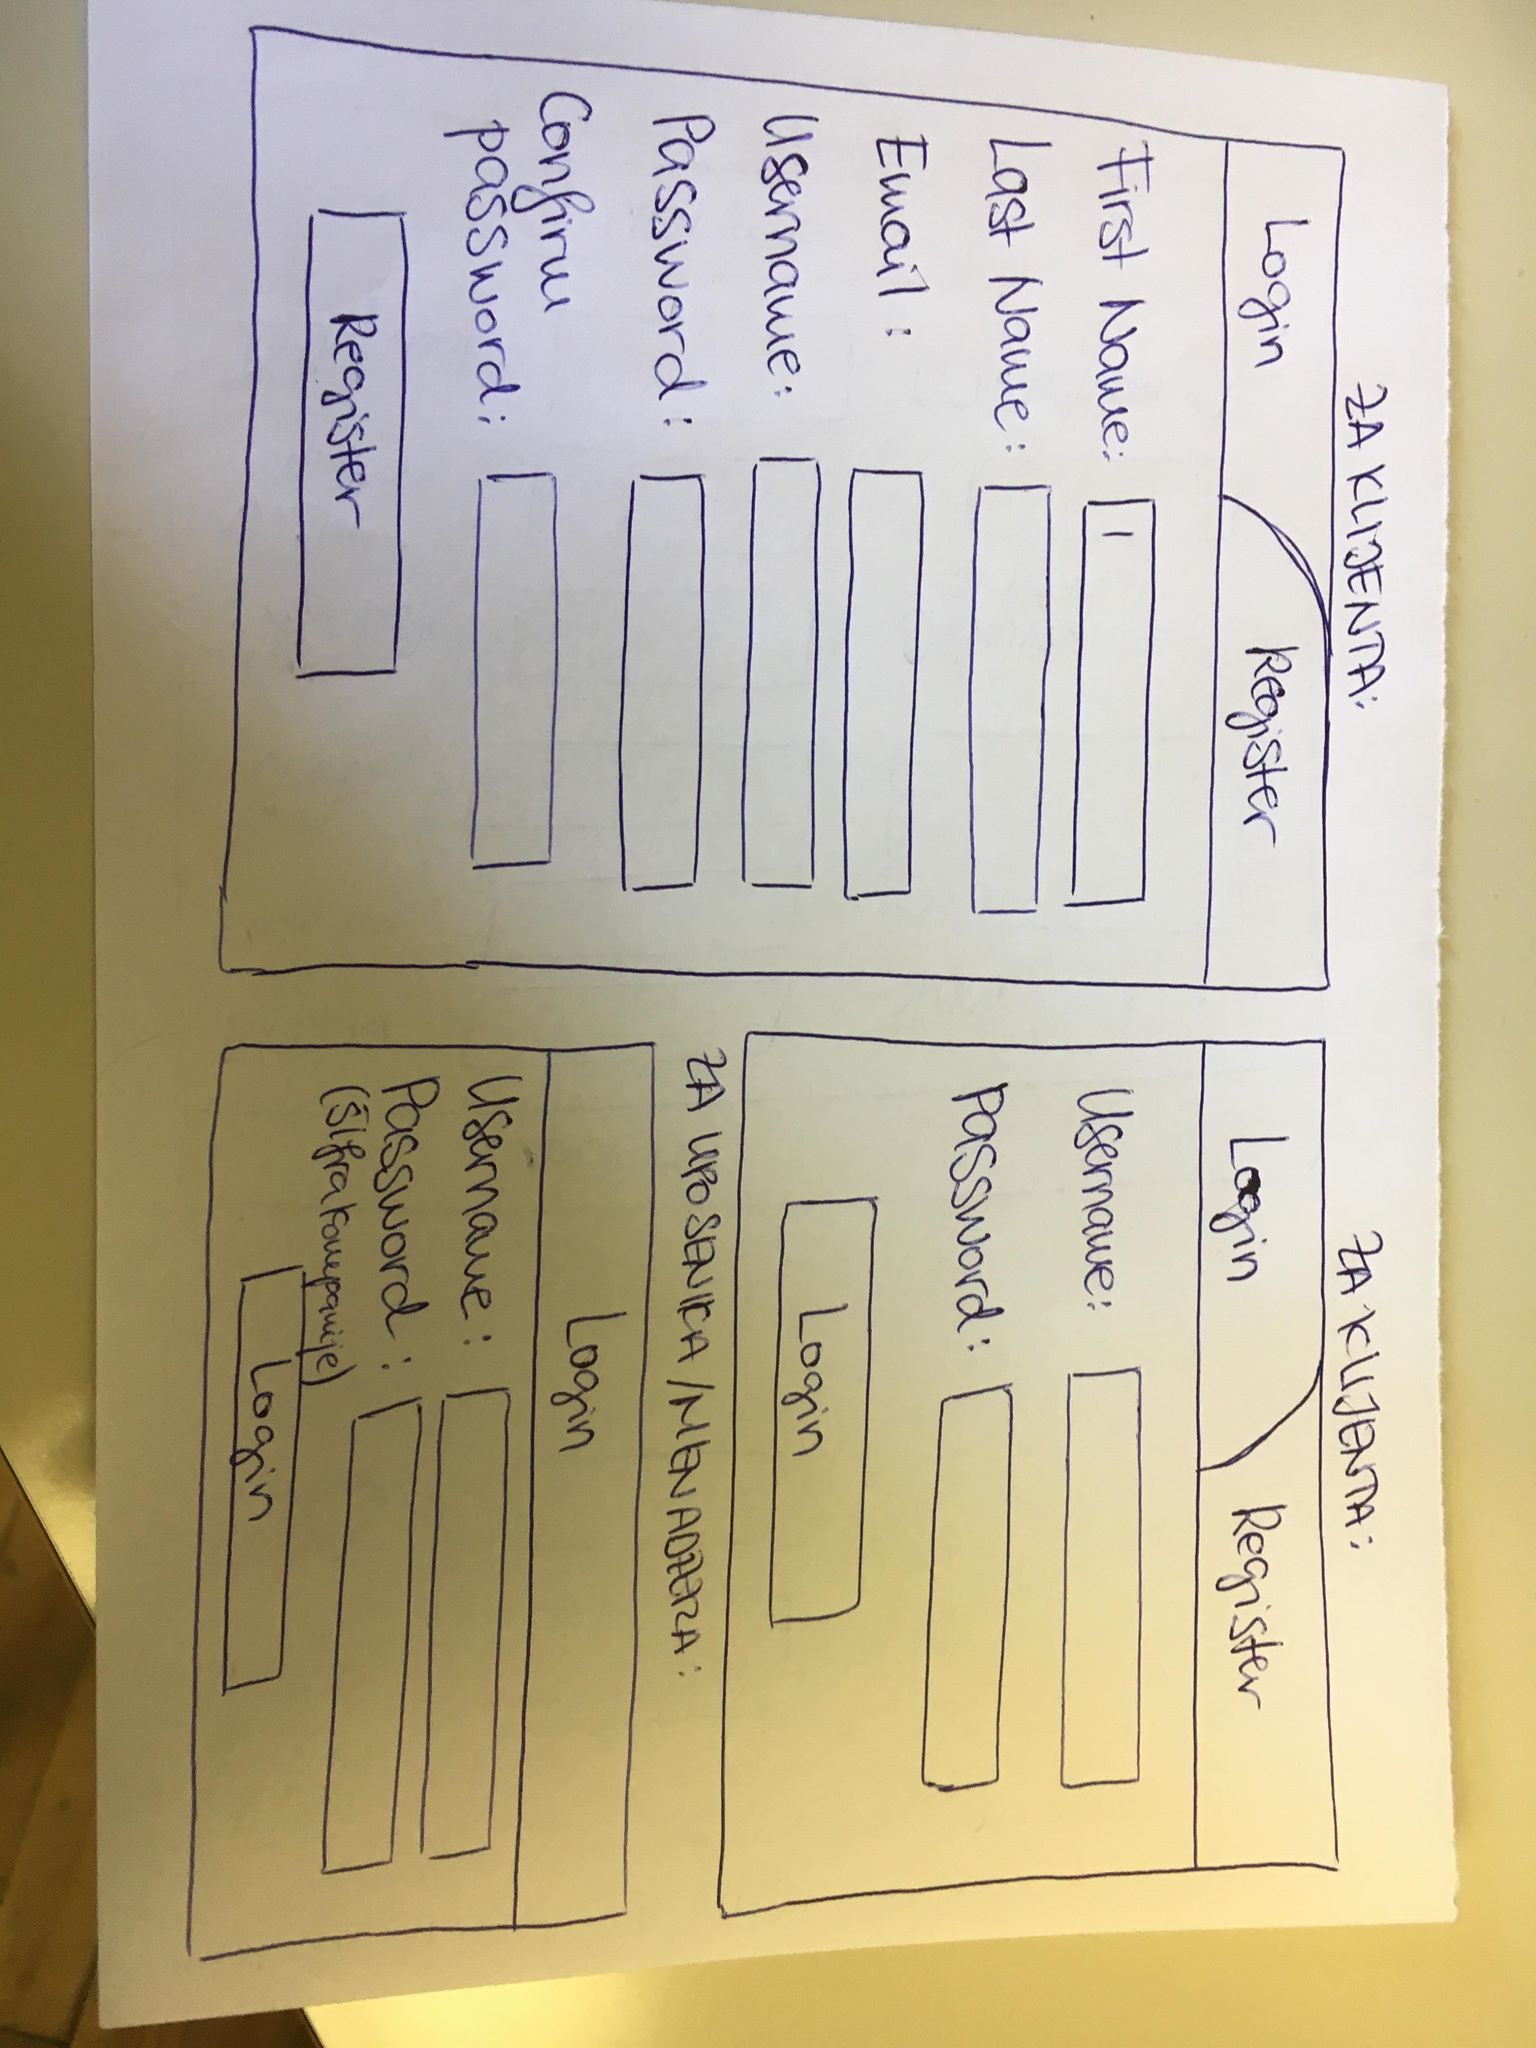 ZA KLIJENTA:
Login
Register
First Name:
Last Name:
Email:
Username:
Password:
Confirm
password:
Register
ZA KLIJENTA:
Login
Register
Username:
Password:
Login
ZA UPOSENIKA/MENADŽERA:
Login
Username:
Password:
(šifra kompanije)
Login